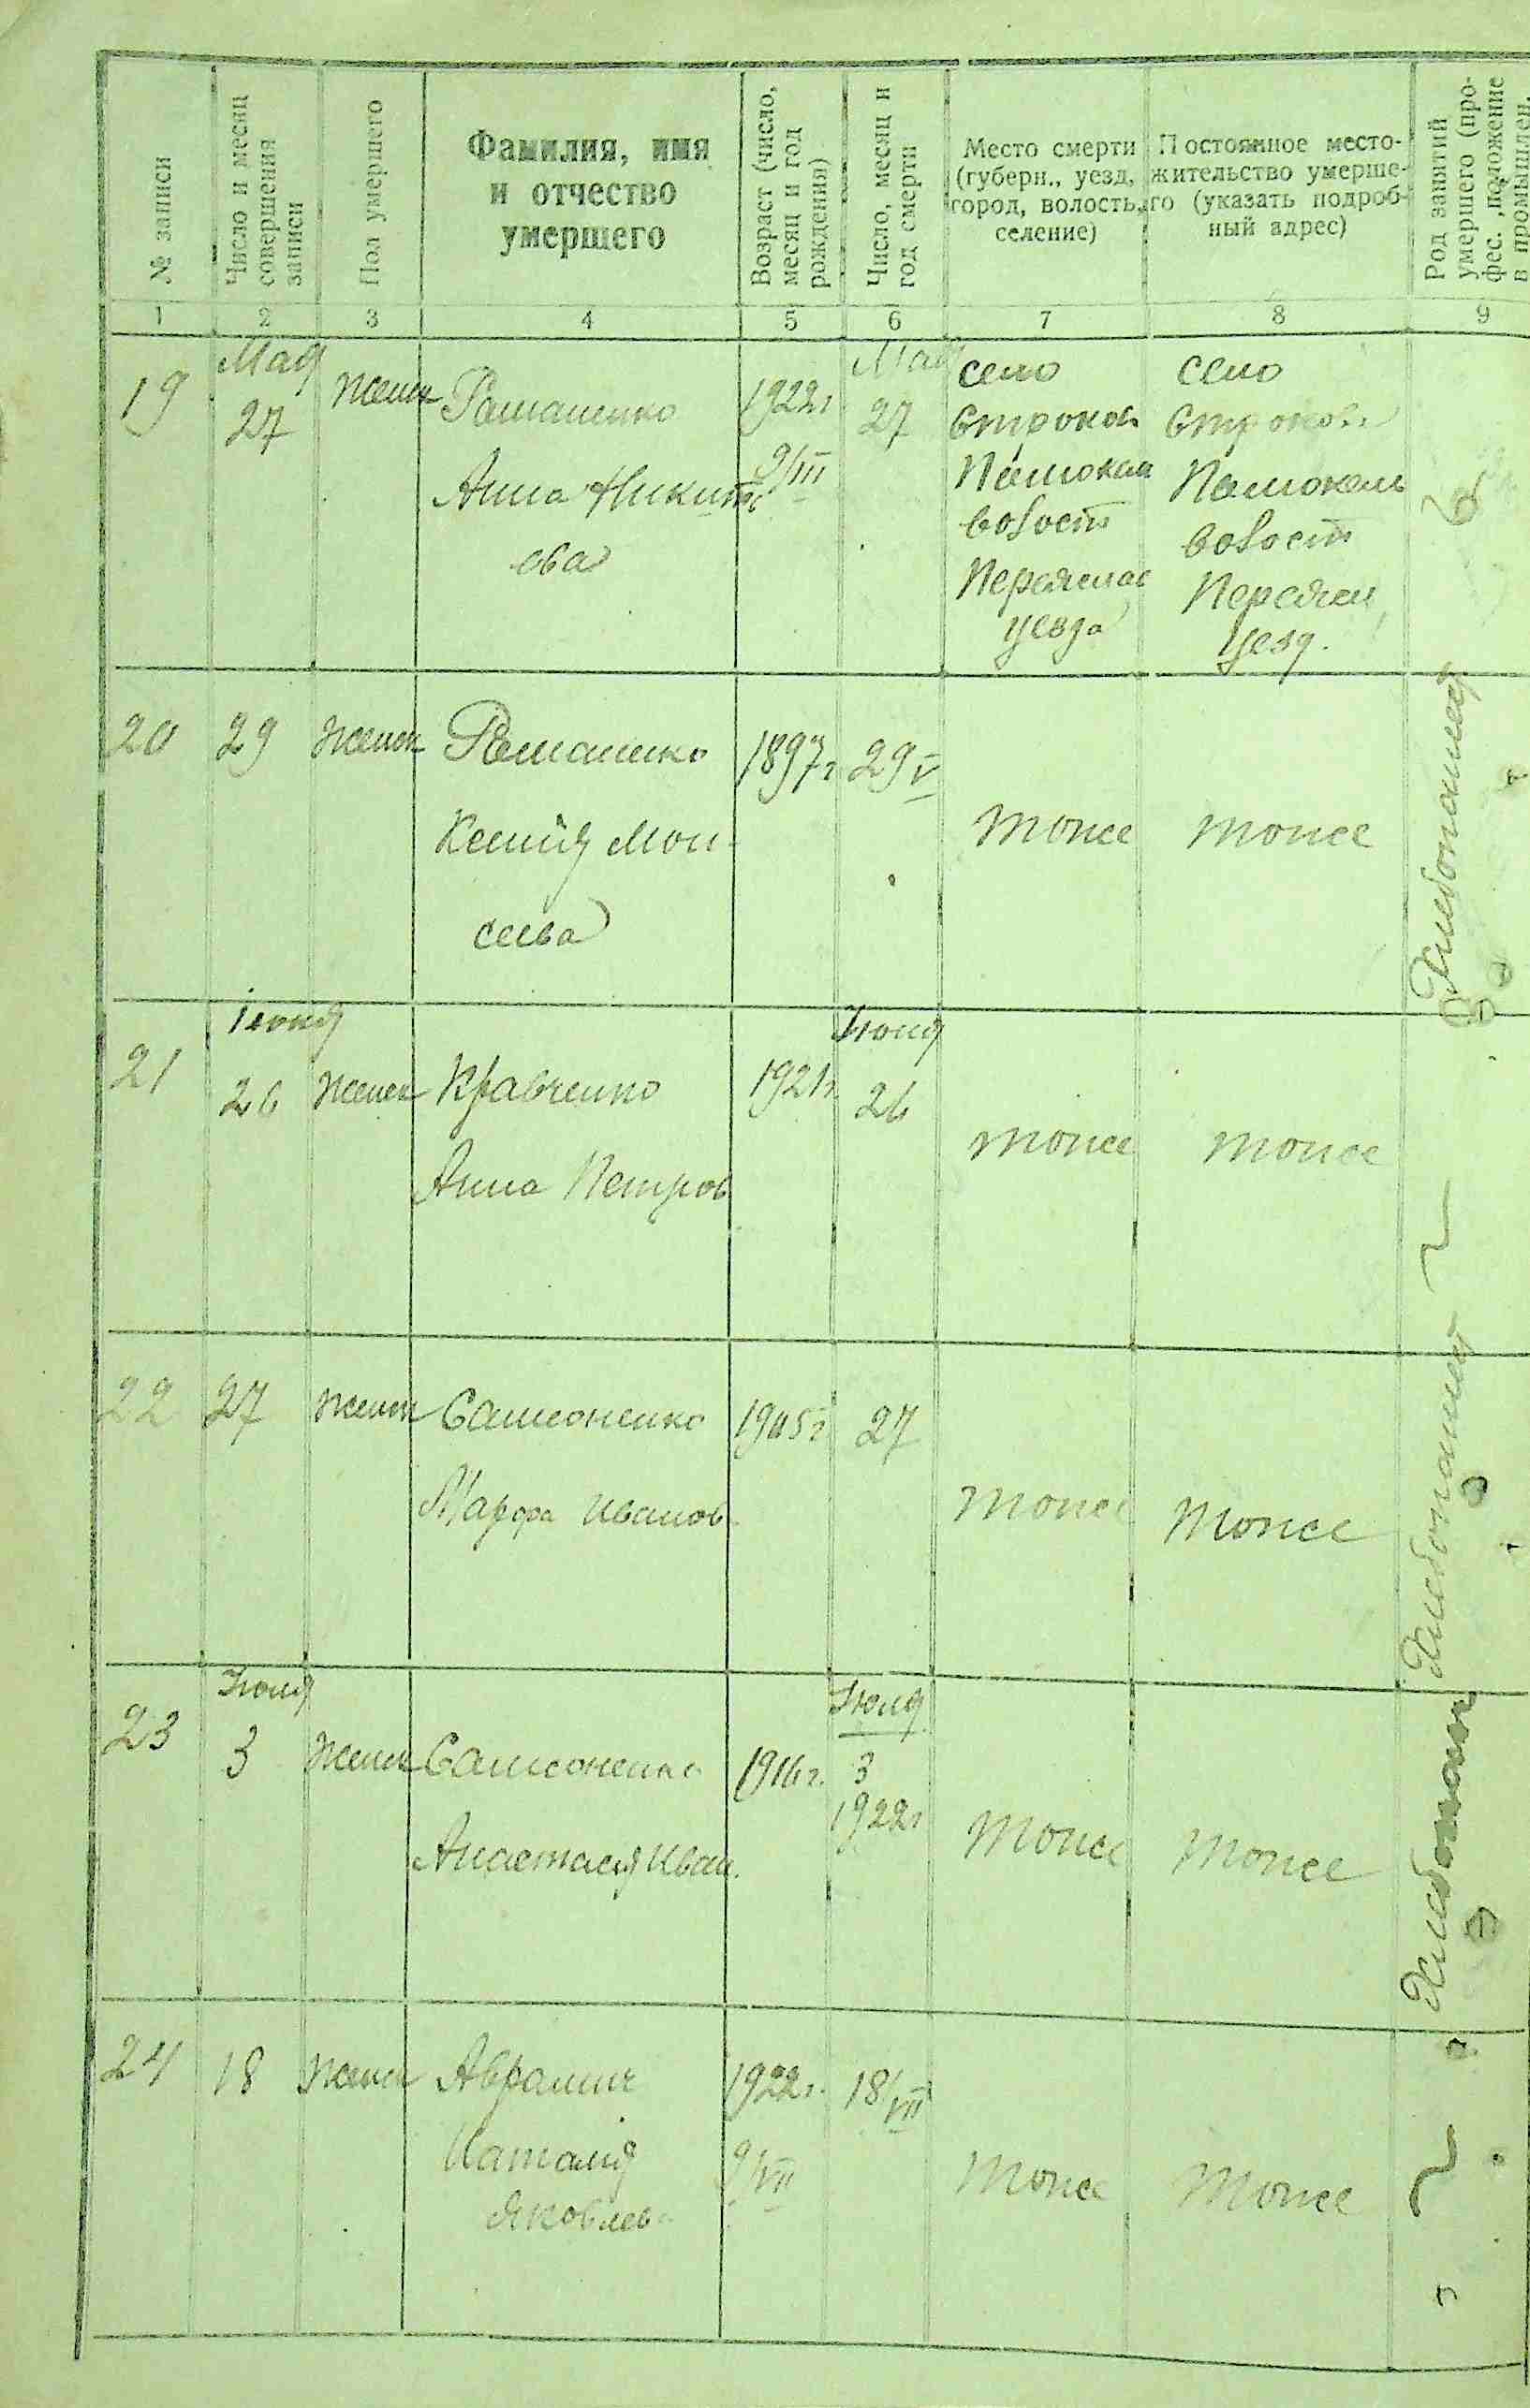 № записи
Число и месяц
совершения
записи
Пол умершего
Фамилия, имя
и отчество
умершего
Возраст (число,
месяц и год
рождения)
Число, месяц и
год смерти
Место смерти
(губерн., уезд,
город, волость,
селение)
Постоянное место-
жительство умерше-
го (указать подроб-
ный адрес)
Род занятий
умершего (про-
фес., положение
в промышлен.
1 2 3 4 5 6 7 8 9
19
Мая
27
женск
Ромашенко
Анна Никит
ова
1922г
9/III
Мая
27
село
Строков
волост
Переяслав
уезда
село
Строков
волост
Переясл
Уезд.
20 29 женск
Ромашенко
Ксения Мои-
сеева
1897г 29/V
тоже тоже
Хлебопашец
21
Июня
26 женск
Кравченко
Анна Петров
1921г
Июня
26
тоже тоже
22 27 женск
Самсоненко
Марфа Иванов
1905г 27
тоже тоже
Хлебопашец
23
Июля
3 женск
Самсоненко
Анастасия Иван.
1916г.
Июля
3
1922г
тоже тоже
24 18 женск
Наталия
Яковлев
1922г.
9/VII
18/VII
тоже тоже